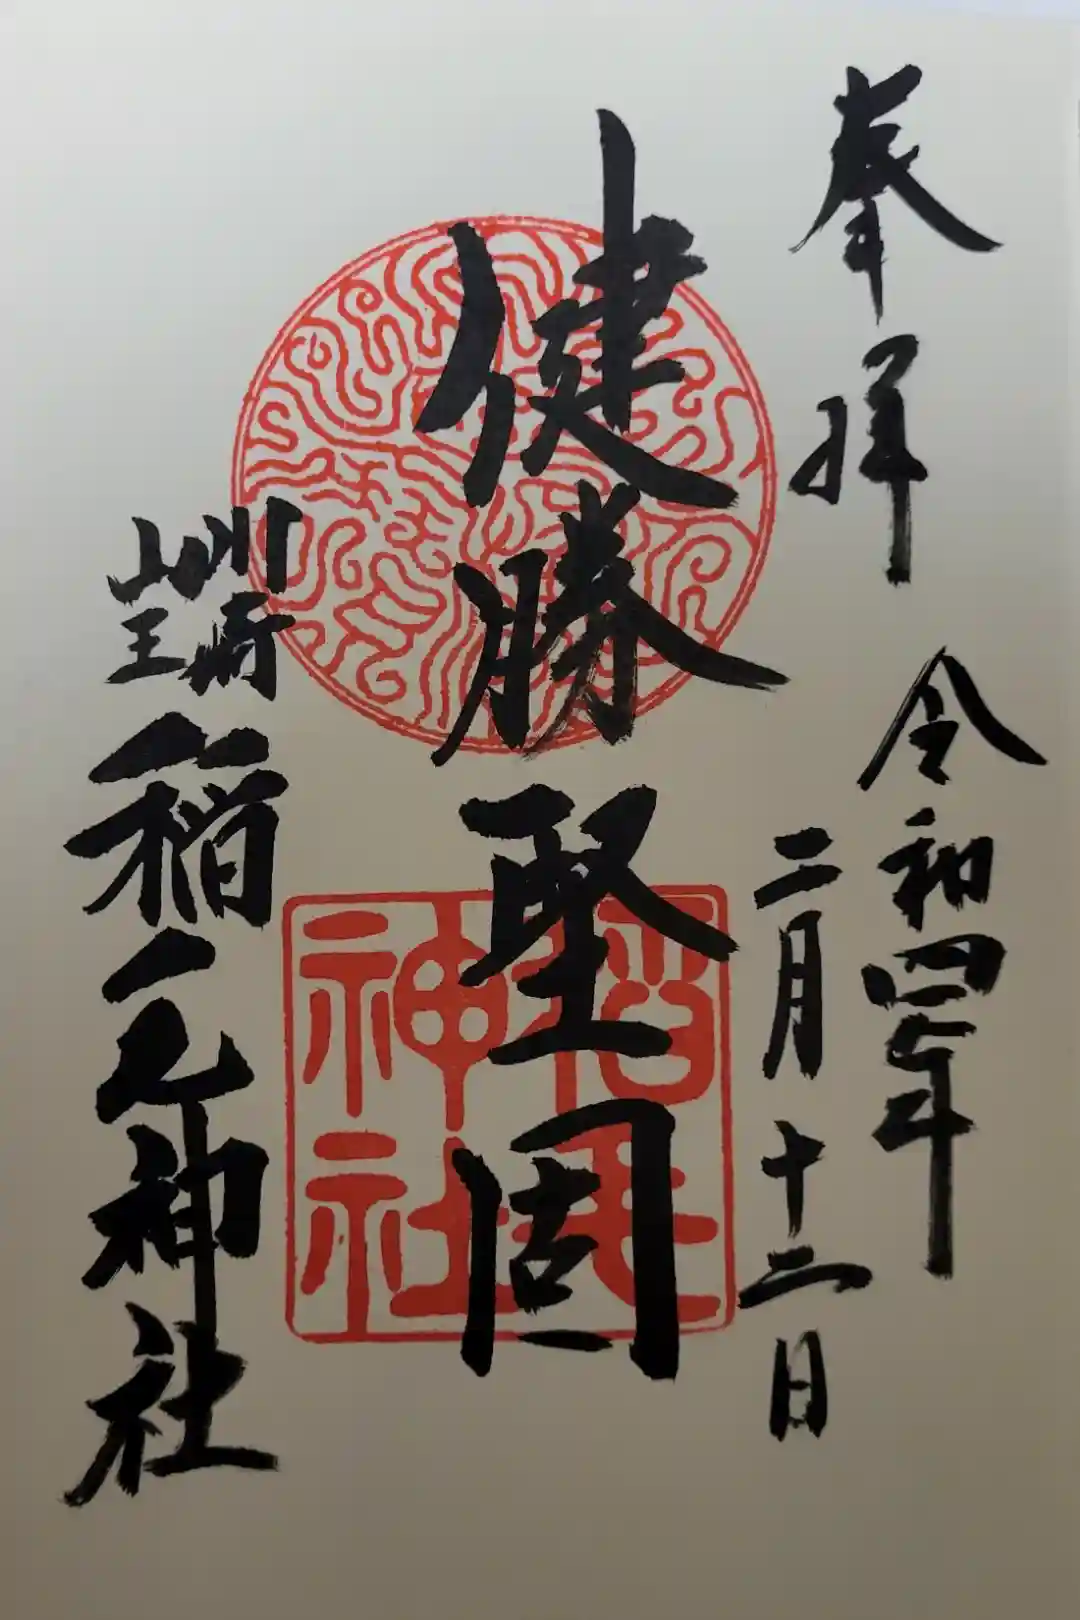 奉拝
令和四年
二月十二日
健勝堅固
川崎
山王
稲毛神社
稲毛
神社